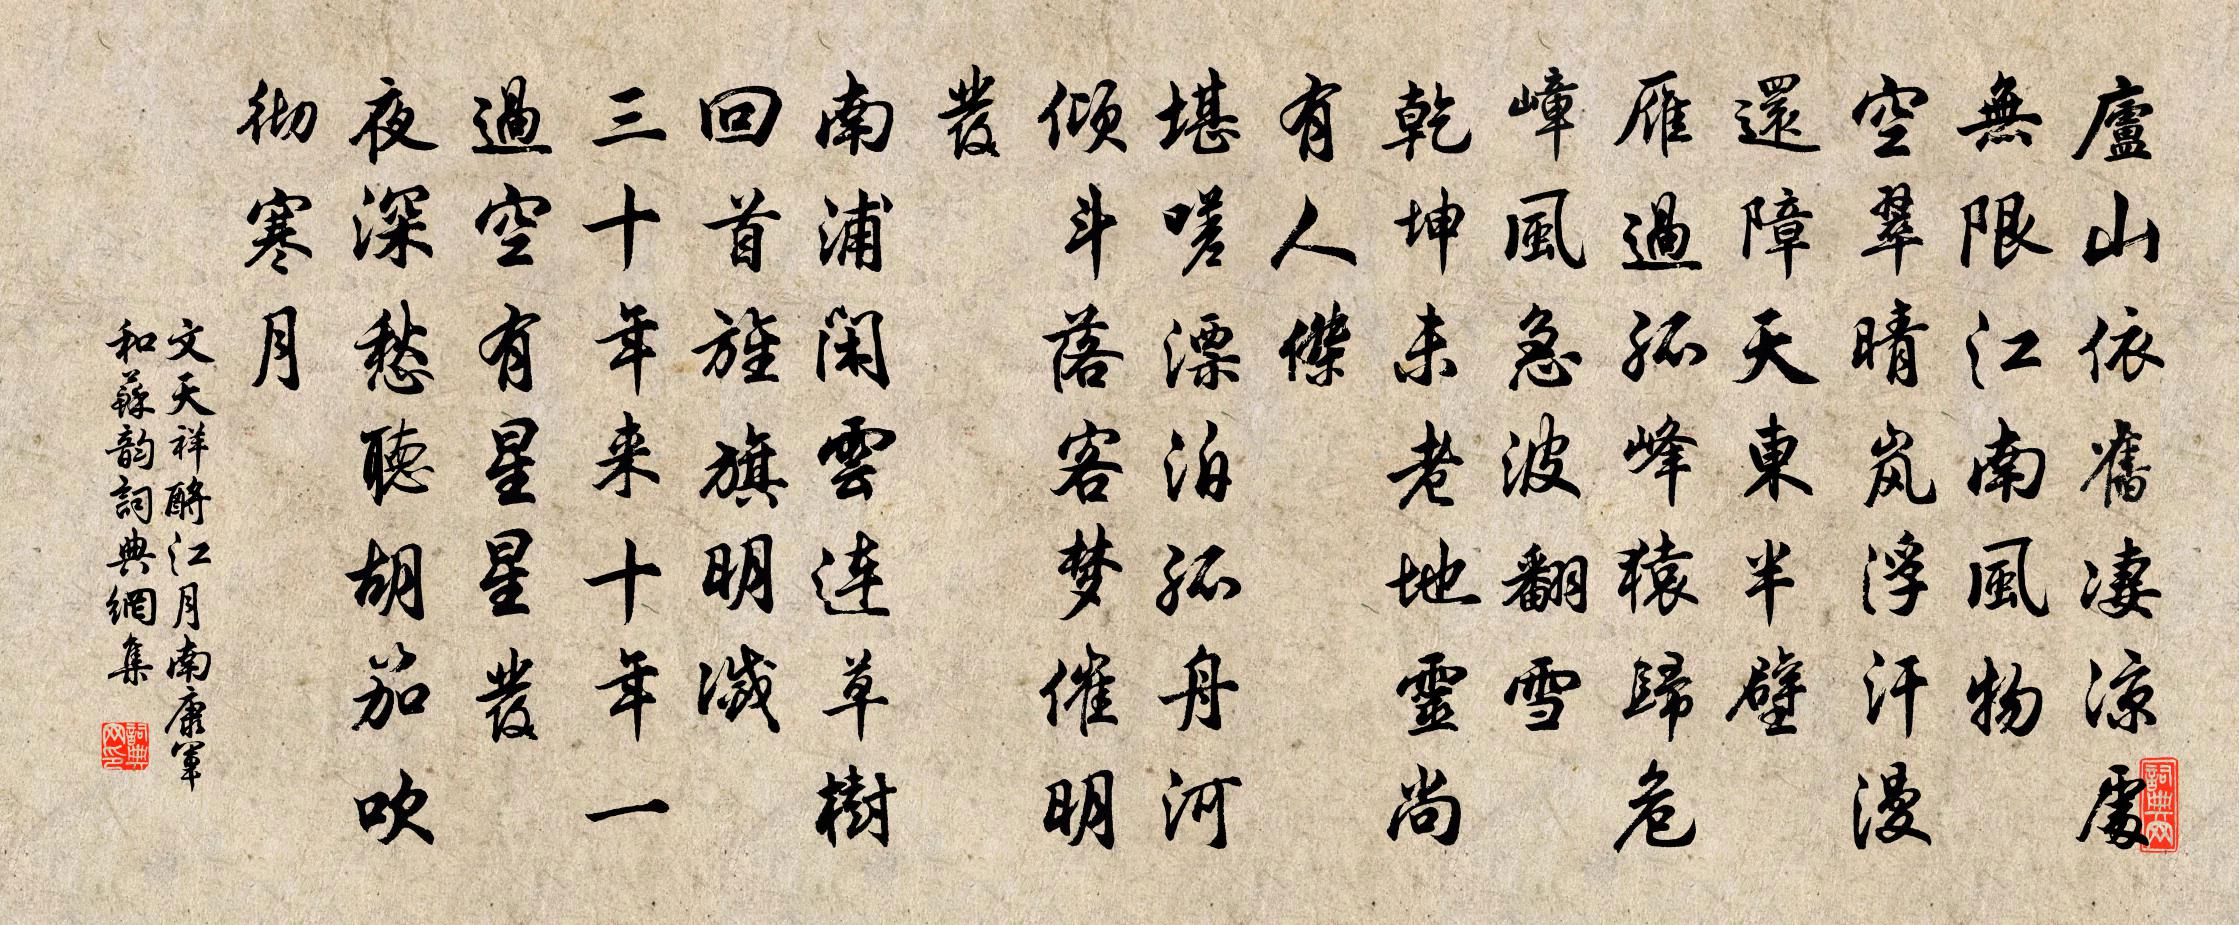 廬山依舊凄涼處
無限江南風物
空翠晴岚浮汗漫
還障天東半壁
雁過孤峰猿歸危
嶂風急波翻雪
乾坤未老地靈尚
有人傑
堪嗟漂泊孤舟河
倾斗落客梦催明
發
南浦闲雲连草樹
回首旌旗明滅
三十年来十年一
過空有星星發
夜深愁聽胡笳吹
彻寒月
文天祥酹江月南康軍
和蘇韵詞典網集
詞典网印
詞典网